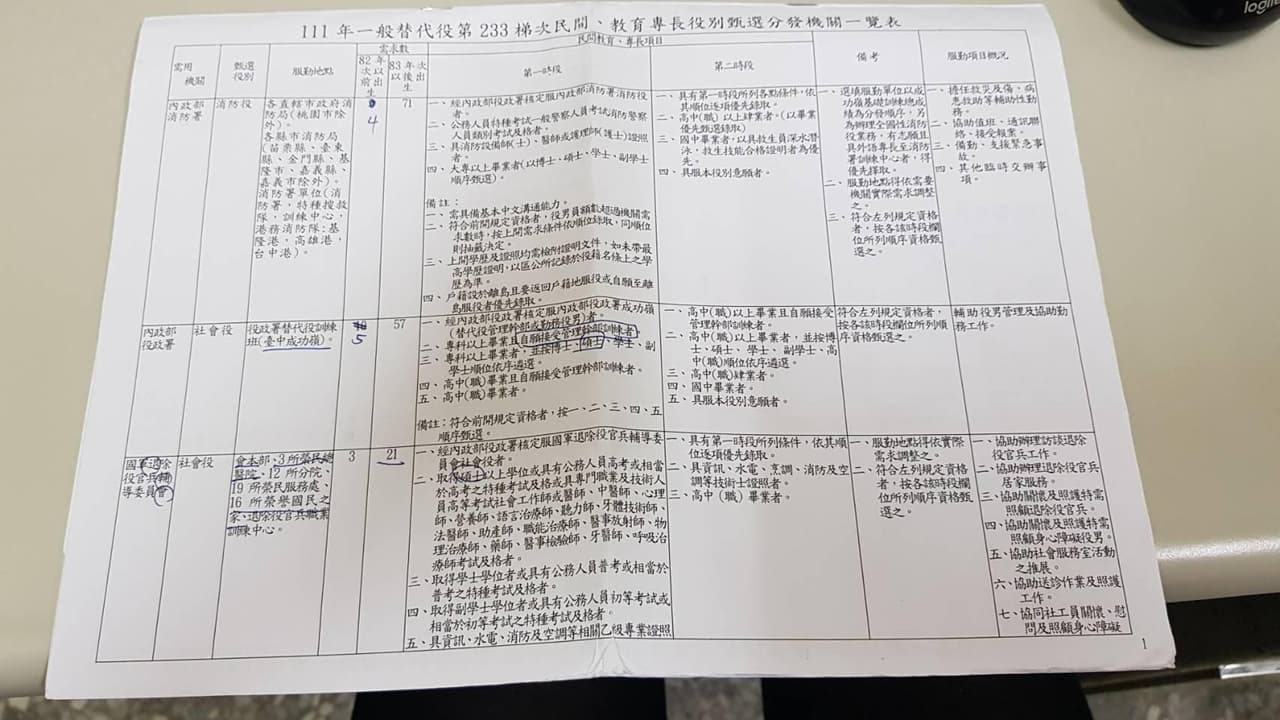 logi
111 年一般替代役第 233 梯次民間、教育專長役別甄選分發機關一覽表
需用機關
甄選役別
服勤地點
需求數
82 年次以前出生
83 年次以後出生
民間教育、專長項目
第一時段
第二時段
備考
服勤項目概況
內政部
消防署
消防役
各直轄市政府消
防局(桃園市除
外)。
各縣市消防局
(苗栗縣、臺東
縣、金門縣、基
隆市、嘉義縣、
嘉義市除外)。
消防署單位(消
防署、特種搜救
隊，訓練中心，
港務消防隊:基
隆港，高雄港，
台中港)。
4
71
一、經內政部役政署核定服內政部消防署消防役
者。
二、公務人員特種考試一般警察人員考試消防警察
人員類別考試及格者。
三、具消防設備師(士)、醫師或護理師(護士)證照
者。
四、大專以上畢業者(以博士、碩士、學士、副學士
順序甄選)。
備註：
一、需具備基本中文溝通能力。
二、符合前開規定資格者，役男員額數超過機關需
求數時，按上開需求條件依順位錄取，同順位
則抽籤決定。
三、上開學歷及證照均需檢附證明文件，如未帶最
高學歷證明，以區公所記錄於役籍名條上之學
歷為準。
四、戶籍設於離島且要返回戶籍地服役或自願至離
島服役者優先錄取。
一、具有第一時段所列各點條件，依
其順位逐項優先錄取。
二、高中(職)以上肄業者。(以畢業
優先甄選錄取)
三、國中畢業者，以具救生員深水潛
泳、救生技能合格證明者為優
先。
四、具服本役別意願者。
一、選填服勤單位以成
功嶺基礎訓練總成
績為分發順序，另
為辦理全國性消防
役業務，有志願且
具外語專長至消防
署訓練中心者，得
優先擇取。
二、服勤地點得依需要
機關實際需求調整
之。
三、符合左列規定資格
者，按各該時段欄
位所列順序資格甄
選之。
一、擔任救災及傷、病
患救助等輔助性勤
務。
二、協助值班、通訊聯
絡、接受報案。
三、備勤、支援緊急事
故。
四、其他臨時交辦事
項。
內政部
役政署
社會役
役政署替代役訓練
班(臺中成功嶺)。
5
57
一、經內政部役政署核定服內政部役政署成功嶺
(替代役管理幹部或勤務役男)者。
二、專科以上畢業且自願接受管理幹部訓練者。
三、專科以上畢業者，並按博士、碩士、學士、副
學士順位依序遴選。
四、高中(職)畢業且自願接受管理幹部訓練者。
五、高中(職)畢業者。
備註：符合前開規定資格者，按一、二、三、四、五
順序甄選。
一、高中(職)以上畢業且自願接受
管理幹部訓練者。
二、高中(職)以上畢業者，並按博
士、碩士、學士、副學士、高
中(職)順位依序遴選。
三、高中(職)肄業者。
四、國中畢業者。
五、具服本役別意願者。
符合左列規定資格者，
按各該時段欄位所列順
序資格甄選之。
輔助役男管理及協助勤
務工作。
國軍退除
役官兵輔
導委員會
社會役
會本部、3 所榮民總
醫院、12 所分院、
19 所榮民服務處、
16 所榮譽國民之
家、退除役官兵職業
訓練中心。
3
21
一、經內政部役政署核定服國軍退除役官兵輔導委
員會社會役者。
二、取得碩士以上學位或具有公務人員高考或相當
於高考之特種考試及格或具專門職業及技術人
員高等考試社會工作師或醫師、中醫師、心理
師、營養師、語言治療師、聽力師、牙體技術師、
法醫師、助產師、職能治療師、醫事放射師、物
理治療師、藥師、醫事檢驗師、牙醫師、呼吸治
療師考試及格者。
三、取得學士學位者或具有公務人員普考或相當於
普考之特種考試及格者。
四、取得副學士學位者或具有公務人員初等考試或
相當於初等考試之特種考試及格者。
五、具資訊、水電、消防及空調等相關乙級專業證照
一、具有第一時段所列條件，依其順
位逐項優先錄取。
二、具資訊、水電、烹調、消防及空
調等技術士證照者。
三、高中（職）畢業者。
一、服勤地點得依實際
需求調整之。
二、符合左列規定資格
者，按各該時段欄
位所列順序資格甄
選之。
一、協助辦理訪談退除
役官兵工作。
二、協助辦理退除役官兵
居家服務。
三、協助關懷及照護特需
照顧退除役官兵。
四、協助關懷及照護特需
照顧身心障礙役男。
五、協助社會服務室活動
之推展。
六、協助送診作業及照護
工作。
七、協同社工員關懷、慰
問及照顧身心障礙
1